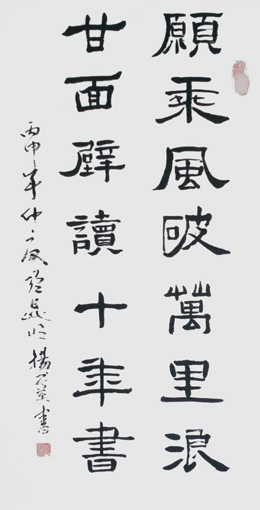 願乘風破萬里浪
甘面壁讀十年書
丙申年仲之夜 楊 英書